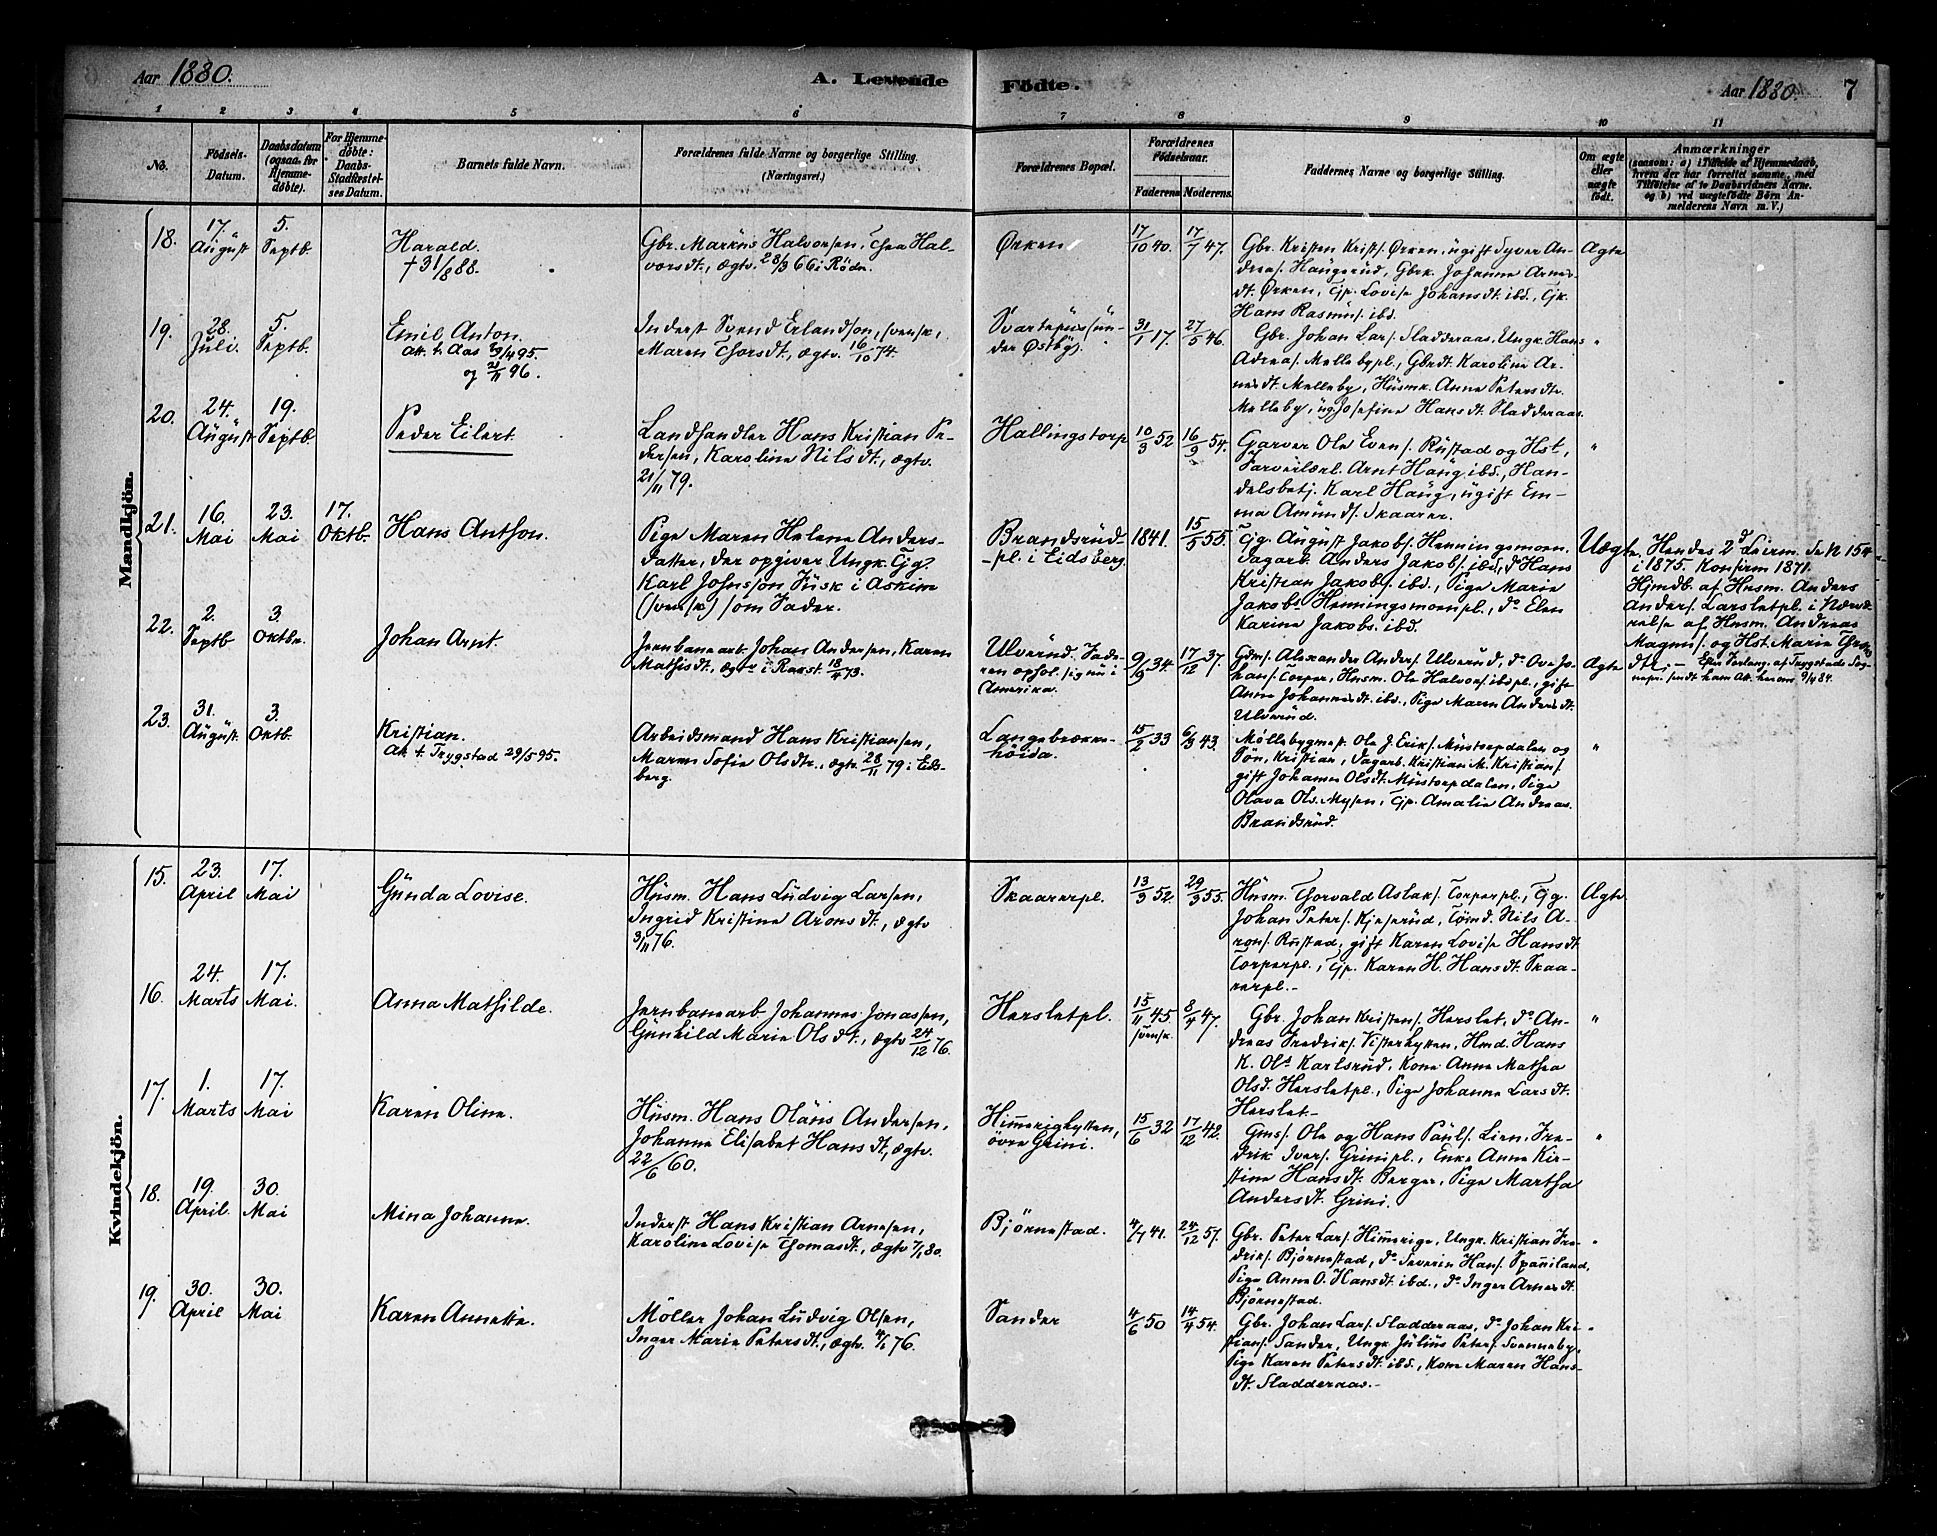 Aar 1880.
A. Levende
Födte.
Aar 1880.
7
1 2 3 4 5 6 7 8 9 10 11
No.
Födsels-
Datum.
Daabsdatum
(ogsaa for
Hjemme-
döbte).
For Hjemme-
döbte:
Daabs-
Stadfæstel-
ses Datum.
Barnets fulde Navn.
Forældrenes fulde Navne og borgerlige Stilling.
(Næringsvei.)
Forældrenes Bopæl.
Forældrenes
Födselsaar.
Faderens Moderens.
Faddernes Navne og borgerlige Stilling.
Om ægte
eller
uægte
födt.
Anmærkninger
(saasom: a) i Tilfælde af Hjemmedaab,
hvem der har forrettet samme, med
Tilföielse af to Daabsvidners Navne.
og b) ved uægtefödte Börn An-
melderens Navn m. V.)
Mandkjön.
18.
17.
August
5.
Septb.
Harald.
† 31/8 88.
Gbr. Markus Halvorsen, Thea Hal-
vorsdt., ægtv. 28/3 66 i Rödn.
Ørken
17/10 40.
17/7 47.
Gbr. Kristen Krists. Ørken, ugift Syver An-
dreas. Haugerud, Gbrk. Johanne Arnes
dt. Ørken, Tjp. Lovise Johansdt. ibd., Tjk.
Hans Rasmus. ibd.
Ægte
19.
28.
Juli.
5.
Septb.
Emil Anton.
Att. t. Aas 29/4 95.
og 21/11 96.
Inderst Svend Erlandson, svensk,
Maren Thorsdt., ægtv. 16/10 74.
Svartepus un-
der Østby.
31/1 17.
27/5 46.
Gbr. Johan Lars. Sladderaas, Ungk. Hans
Adreas. Mellebypl., Gbrdt. Karoline Ar-
nesdt. Melleby, Husmk. Anne Petersdtr.
Melleby, ug. Josefine Hansdt. Sladderaas.
"
20.
24.
August
19.
Septb.
Peder Eilert.
Landhandler Hans Kristian Pe-
dersen, Karoline Nilsdt., ægtv.
21/11 79.
Hallingstorp
10/3 52
16/9 54.
Garver Ole Evens. Rustad og Hst,
Farverlærl. Arnt Haug ibd., Han-
delsbetj. Karl Haug, ugift Em-
ma Amunds. Skaarer.
"
21.
16.
Mai
23.
Mai
17.
Oktb.
Hans Anthon.
Pige Maren Helene Anders-
datter, der opgiver Ungk. Tjg.
Karl Johnsson Fusk i Askim
(svensk) som Fader.
Brandsrud-
pl. i Eidsberg.
1841.
15/5 55.
Tjg. August Jakobs. Henningsmoen.
Dagarb. Anders Jakobs. ibd., do Hans
Kristian Jakobs. ibd., Pige Marie
Jakobs. Henningsmoenpl., do Elen
Karine Jakobs. ibd.
Uægte.
Hendes 2d Leierm. Se N 154
i 1875. Konfirm 1871.
Hjmdb. af Husm. Anders
Anders. Larsletpl. i Nærvæ
relse af Husm. Andreas
Magnus. og Hst. Marie
22.
2.
Septb
3.
Oktbr.
Johan Arnt.
Jernbanearb. Johan Andersen, Karen
Mathisdt., ægtv. i Rakst. 18/4 73.
Ulverud. Fade-
ren ophol. sig nu i
Amerika.
9/9 34.
17/12 37.
Gdms. Alexander Anders. Ulverud, do Ove Jo-
hans. Torper, Husm. Ole Halvors. ibdpl., gift
Anne Johannesdt. ibd., Pige Maren Andersdt.
Ulverud.
Ægte
Efter Forlang. af Trygstads Sog-
nepr. sendt ham Att. herom 9/4 84.
23.
31.
August.
3.
Oktb.
Kristian.
Att. t. Trygstad 29/5 95.
Arbeidsmand Hans Kristiansen,
Maren Sofie Olsdtr., ægtv 28/11 79 i Eids-
berg.
Langebrække-
höida.
15/2 33
6/3 43.
Möllebygmest. Ole J. Eriks. Mustorpdalen og
Sön, Kristian, Dagarb. Kristian M. Kristians.
gift Johanne Olsdt. Mustorpdalen, Pige
Olava Ols. Mysen, Tjp. Amalie Andreas.
Brandsrud.
"
Kvindekjön.
15.
23.
April
17.
Mai
Gunda Lovise.
Husm. Hans Ludvig Larsen,
Ingrid Kristine Aronsdt., ægtv
3/11 76.
Skaarerpl.
13/3 52.
29/3 55.
Husm. Thorvald Aslaks. Torperpl., Tjg.
Johan Peters. Kjeserud, Tömd. Nils A-
rons. Rustad, gift Karen Lovise Hansdt
Torperpl., Tjp. Karen H. Hansdt. Skaa-
rerpl.-
Ægte
16.
24.
Marts
17.
Mai.
Anna Mathilde.
Jernbanearb. Johannes Jonassen,
Gunhild Marie Olsdt., ægtv 24/12 76.
Hersletpl.
15/11 45
svensk.
8/4 47.
Gbr. Johan Kristens. Herslet, do An-
dreas Fredriks. Visterhytten, Hmd. Hans
K. Ols. Karlsrud, Kone Anne Mathea
Olsd. Hersletpl., Pige Johanne Larsdt.
Herslet.-
"
17.
1.
Marts
17.
Mai
Karen Oline.
Husm. Hans Olaus Andersen,
Johanne Elisabet Hansdt., ægtv.
22/6 60.
Himerighytten,
övre Grini.
15/6 32
17/12 42.
Gms. Ole og Hans Pauls. Lien, Fre-
drik Ivers. Grinipl., Enke Anne Kir-
stine Hansdt. Berger, Pige Martha
Andersdt. Grini.
"
18.
19.
April.
30.
Mai
Mina Johanne.
Inderst Hans Kristian Arnesen,
Karoline Lovise Thomasdt., ægtv 7/1 80.
Bjørnestad.
4/7 41.
24/12 57.
Gbr. Peter Lars. Himerige, Ungk. Kristian Fre-
driks. Bjørnestad, do Severin Hans. Spauiland,
Pige Anne O. Hansdt. ibd., do Inger Arnesdt.
Bjørnestad.
"
19.
30.
April
30.
Mai
Karen Annette.
Möller Johan Ludvig Olsen,
Inger Marie Petersdt., ægtv. 4/1 76.
Sander
4/6 50
14/4 54.
Gbr. Johan Lars. Sladderaas, do Johan Kri-
stians. Sander, Ungk Julius Peters. Svenneby,
Pige Karen Petersdt. ibd., Kone Maren Hans-
dt. Sladderaas.-
"